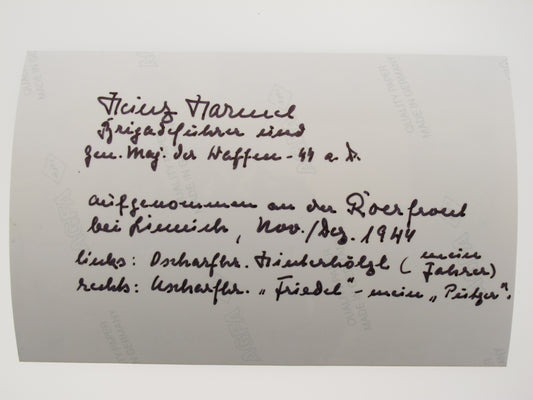 Heinz Harmel
Brigadeführer und
Gen. Maj. der Waffen-SS a. D.
aufgenommen an der Roerfront
bei Linnich, Nov./Dez. 1944
links: Oscharfhr. Hinterhölzl (mein Fahrer)
rechts: Uscharfhr. „Friedel" - mein „Putzer".
AGFA
QUALITY PAPER
MADE IN GERMANY